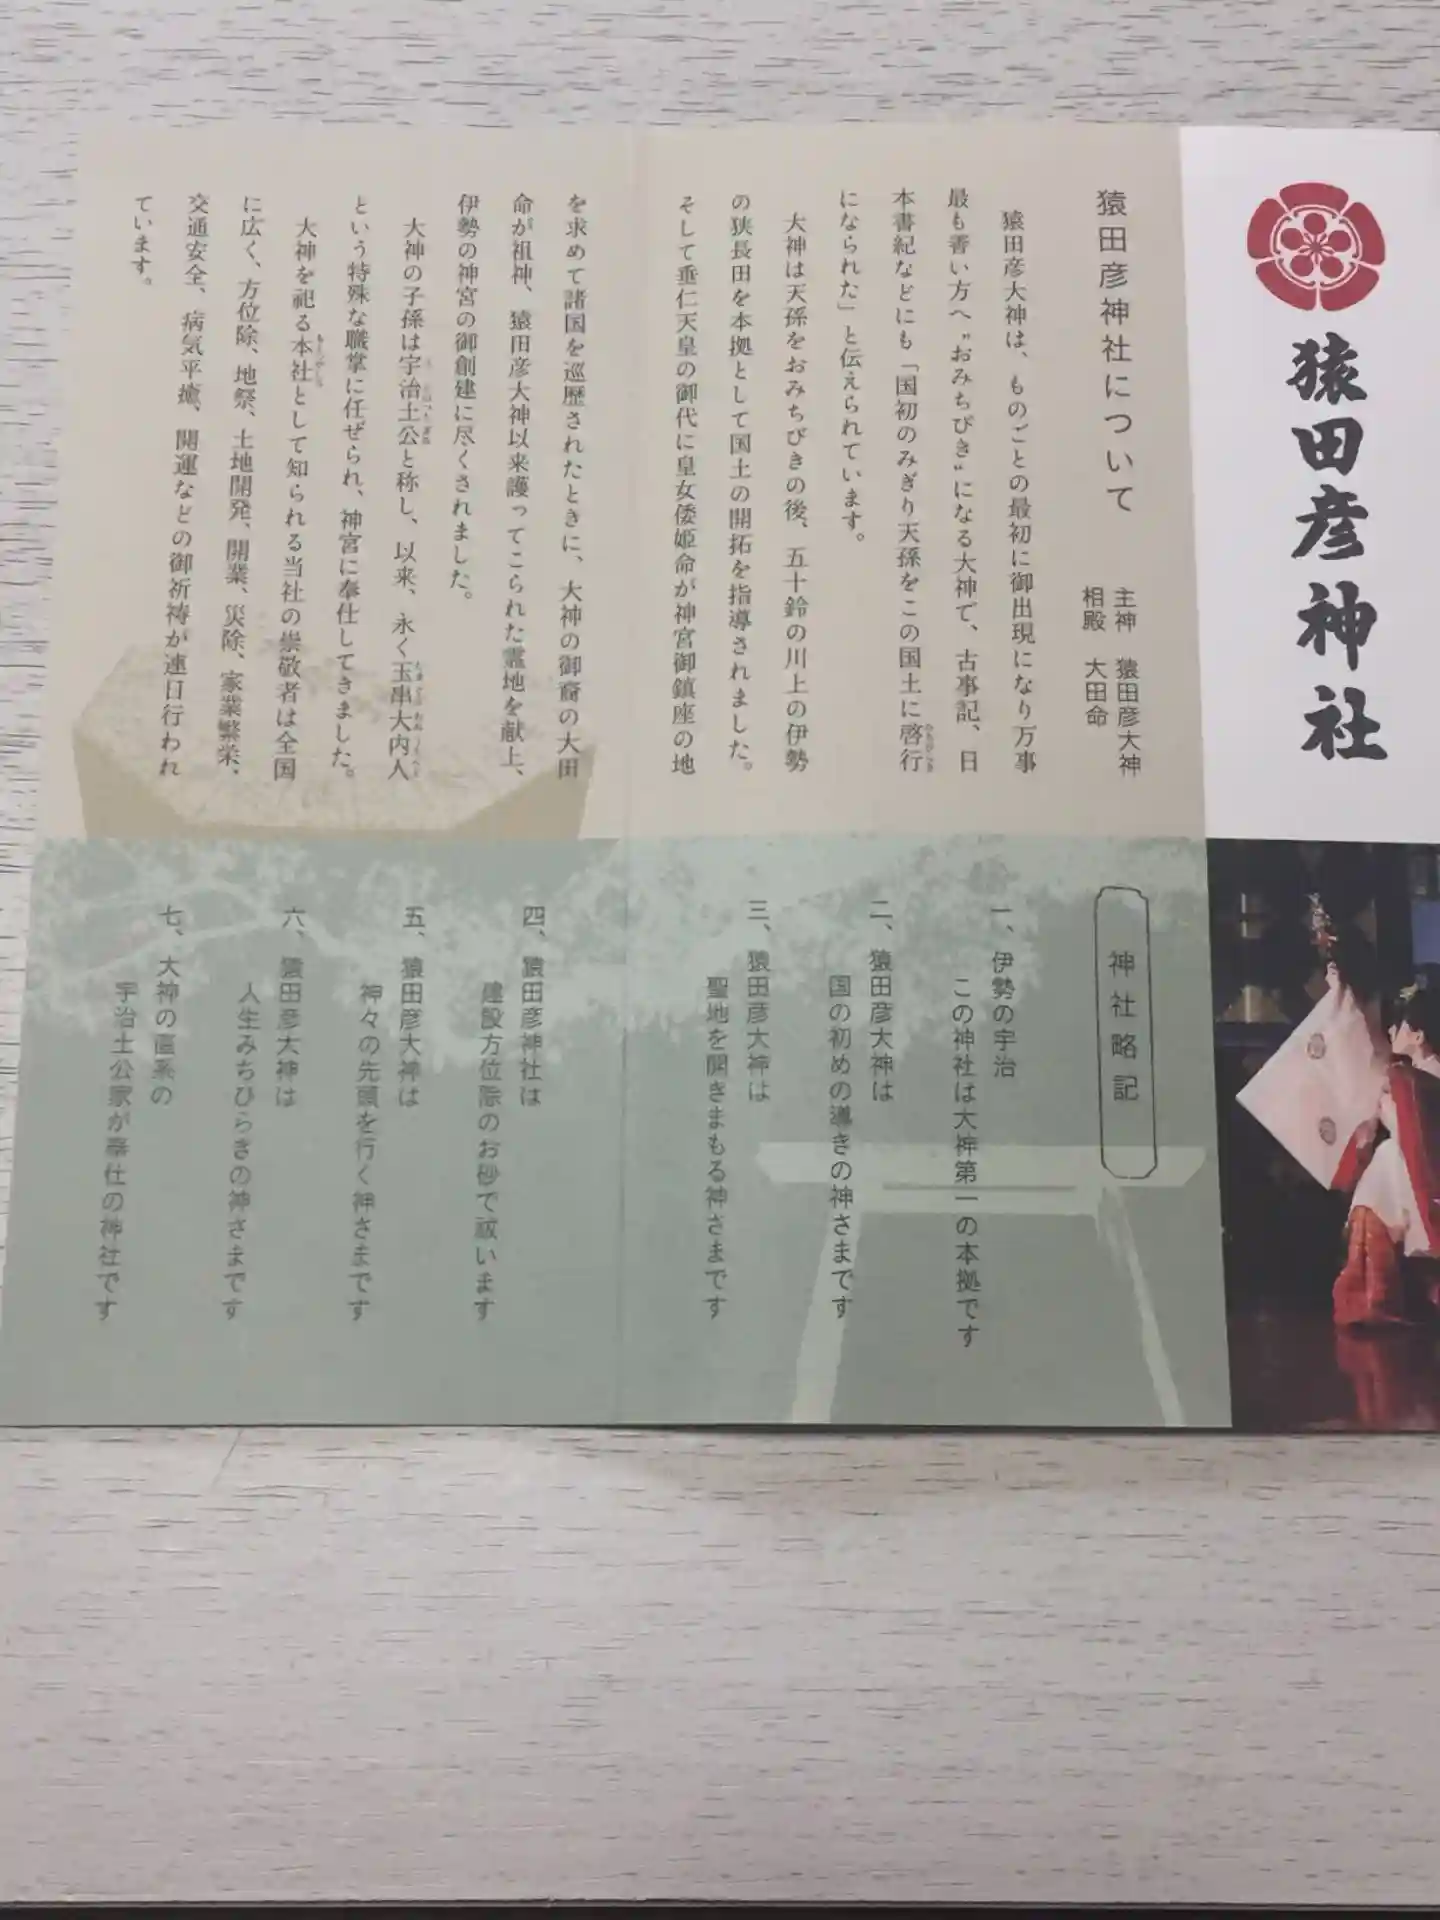 猿田彦神社
猿田彦神社について
主神 猿田彦大神
相殿 大田命
猿田彦大神は、ものごとの最初に御出現になり万事
最も善い方へ〝おみちびき〟になる大神で、古事記、日
本書紀などにも「国初のみぎり天孫をこの国土に啓行
になられた」と伝えられています。
大神は天孫をおみちびきの後、五十鈴の川上の伊勢
の狭長田を本拠として国土の開拓を指導されました。
そして垂仁天皇の御代に皇女倭姫命が神宮御鎮座の地
を求めて諸国を巡歴されたときに、大神の御裔の大田
命が祖神、猿田彦大神以来護ってこられた霊地を献上、
伊勢の神宮の御創建に尽くされました。
大神の子孫は宇治土公と称し、以来、永く玉串大内人
という特殊な職掌に任ぜられ、神宮に奉仕してきました。
大神を祀る本社として知られる当社の崇敬者は全国
に広く、方位除、地祭、土地開発、開業、災除、家業繁栄、
交通安全、病気平癒、開運などの御祈祷が連日行われ
ています。
神社略記
一、伊勢の宇治
この神社は大神第一の本拠です
二、猿田彦大神は
国の初めの導きの神さまです
三、猿田彦大神は
聖地を開きまもる神さまです
四、猿田彦神社は
建設方位除のお砂で祓います
五、猿田彦大神は
神々の先頭を行く神さまです
六、猿田彦大神は
人生みちひらきの神さまです
七、大神の直系の
宇治土公家が奉仕の神社です